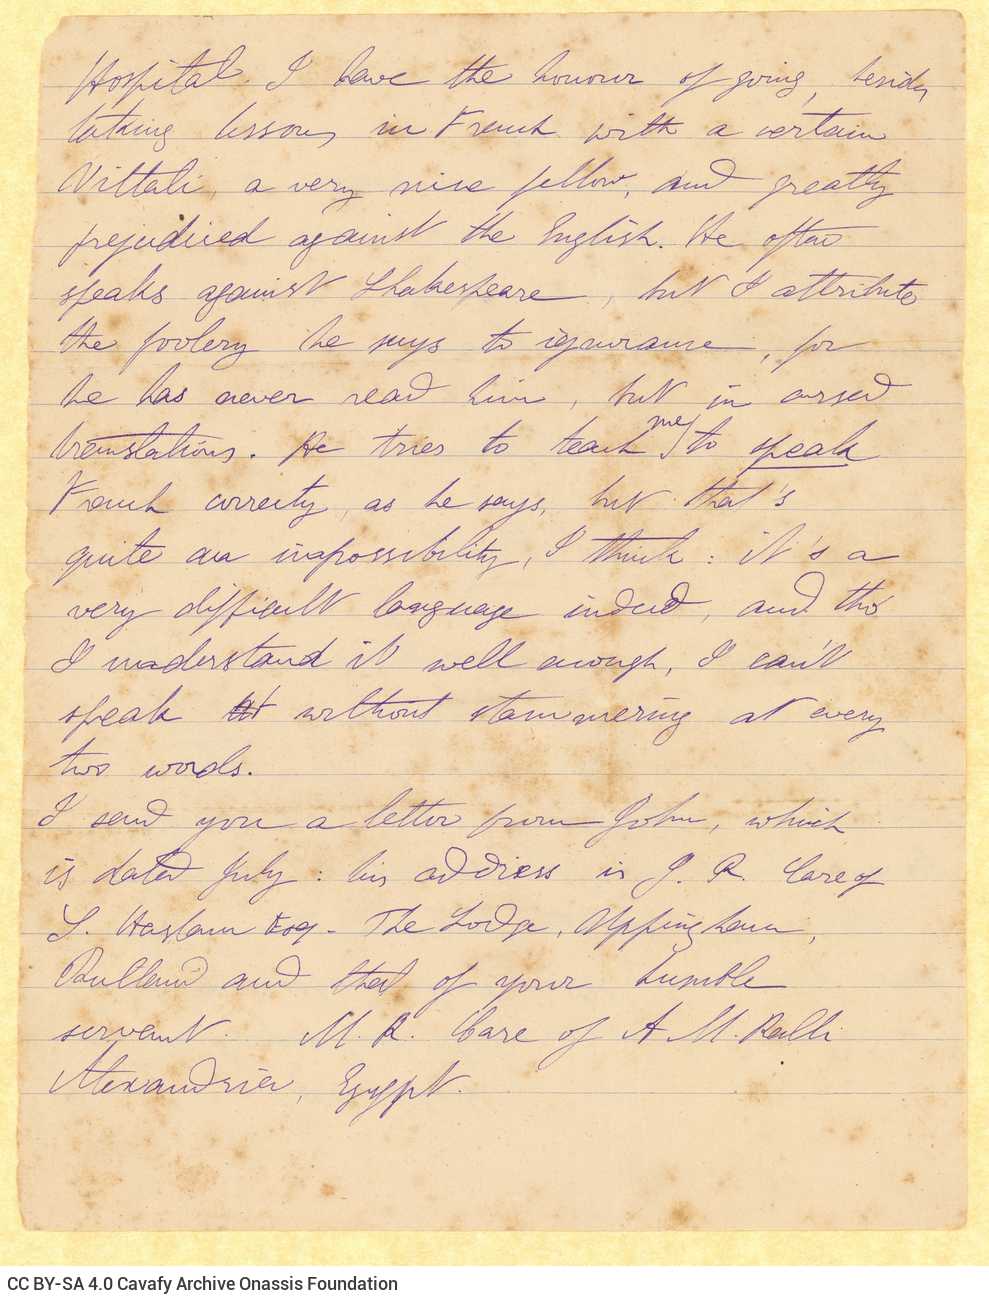 Hospital I have the honour of going, besides
taking lessons in French with a certain
Vittali, a very nice fellow, and greatly
prejudiced against the English. He often
speaks against Shakespeare, but I attribute
the foolery he says to ignorance, for
he has never read him, but in cursed
translations. He tries to teach me to speak
French correctly, as he says, but that's
quite an impossibility, I think: it's a
very difficult language indeed, and tho'
I understand it well enough, I can't
speak it without stammering at every
two words.
I send you a letter from John, which
is dated July: his address is J. R. Care of
S. Haslam Esq- The Lodge, Uppingham,
Rutland and that of your humble
servant. M. R. Care of A M. Ralli
Alexandria, Egypt.
CC BY-SA 4.0 Cavafy Archive Onassis Foundation